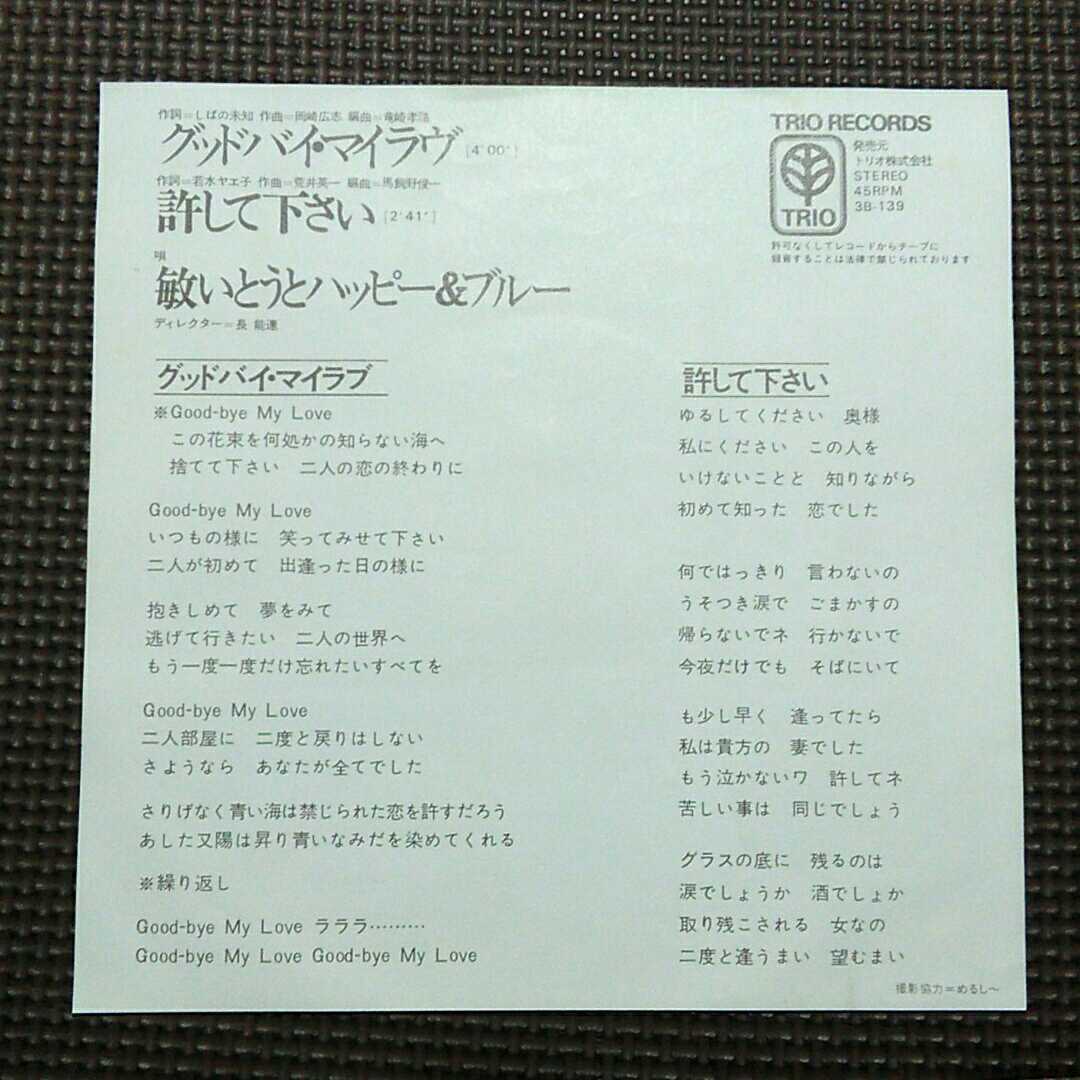 作詞=しばの未知 作曲=岡崎広志 編曲=竜崎孝路
グッドバイ・マイラヴ [4'00"]
作詞=若水ヤエ子 作曲=荒井英一 編曲=馬飼野俊一
許して下さい [2'41"]
唄
敏いとうとハッピー&ブルー
ディレクター=長 能連
TRIO RECORDS
TRIO
発売元
トリオ株式会社
STEREO
45RPM
3B-139
許可なくしてレコードからテープに
録音することは法律で禁じられております
グッドバイ・マイラブ
※Good-bye My Love
この花束を何処かの知らない海へ
捨てて下さい 二人の恋の終わりに
Good-bye My Love
いつもの様に 笑ってみせて下さい
二人が初めて 出逢った日の様に
抱きしめて 夢をみて
逃げて行きたい 二人の世界へ
もう一度一度だけ忘れたいすべてを
Good-bye My Love
二人部屋に 二度と戻りはしない
さようなら あなたが全てでした
さりげなく青い海は禁じられた恋を許すだろう
あした又陽は昇り青いなみだを染めてくれる
※繰り返し
Good-bye My Love ラララ………
Good-bye My Love Good-bye My Love
許して下さい
ゆるしてください 奥様
私にください この人を
いけないことと 知りながら
初めて知った 恋でした
何ではっきり 言わないの
うそつき涙で ごまかすの
帰らないでネ 行かないで
今夜だけでも そばにいて
も少し早く 逢ってたら
私は貴方の 妻でした
もう泣かないワ 許してネ
苦しい事は 同じでしょう
グラスの底に 残るのは
涙でしょうか 酒でしょか
取り残こされる 女なの
二度と逢うまい 望むまい
撮影協力=めるし〜